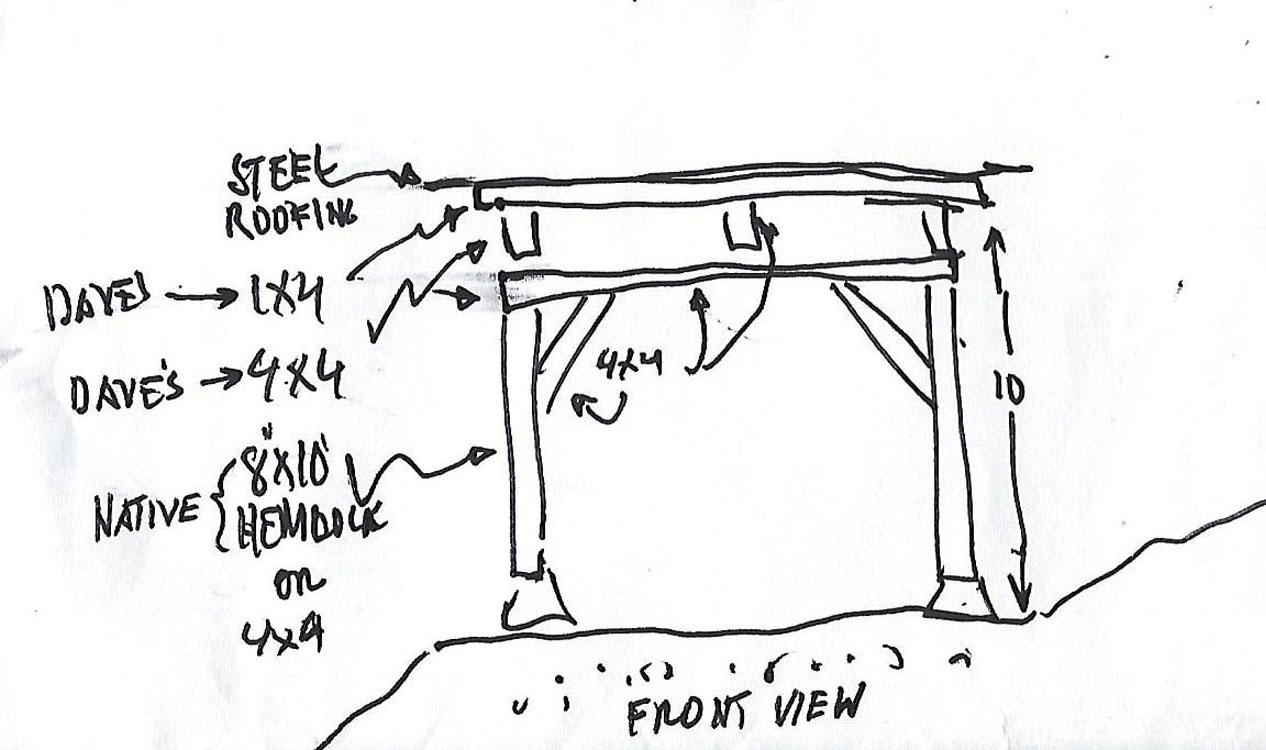 STEEL
ROOFING
DAVE'S → 1X4
DAVE'S → 4X4
4X4
10
8"X10'
NATIVE { HEMLOCK
on
4x4
FRONT VIEW